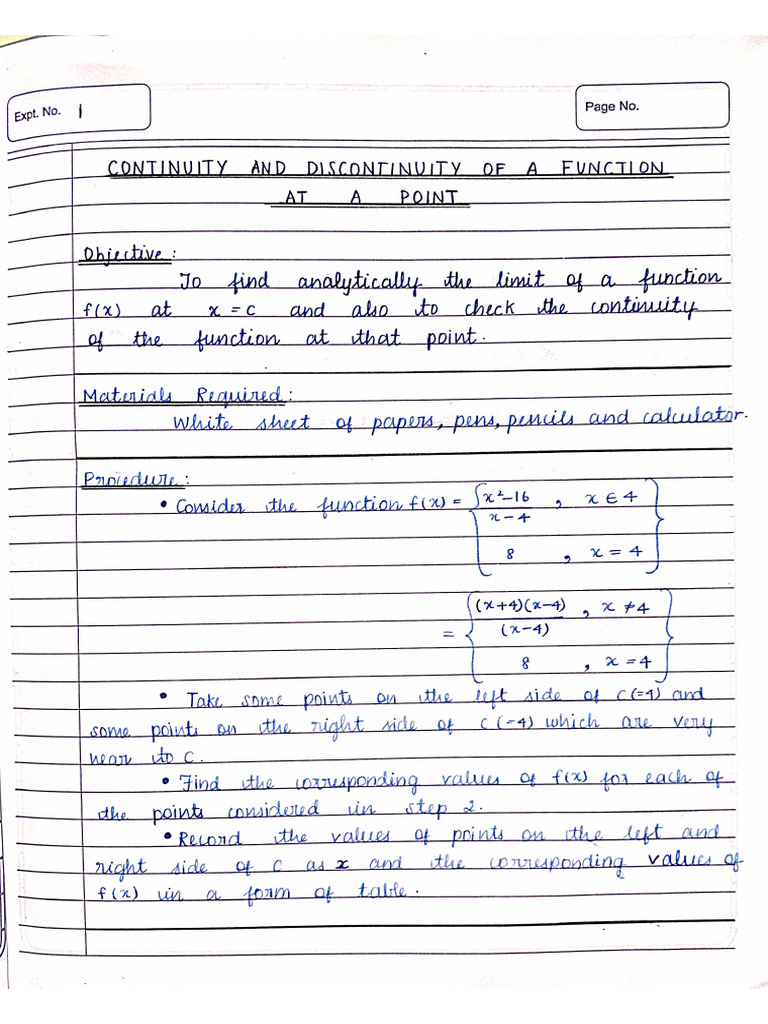 Expt. No. 1
Page No.
CONTINUITY AND DISCONTINUITY OF A FUNCTION
AT A POINT
Objective:
To find analytically the limit of a function
f(x) at x = c and also to check the continuity
of the function at that point.
Materials Required:
White sheet of papers, pens, pencils and calculator.
Procedure:
• Consider the function f(x) = { x²-16 / x-4 , x ∈ 4
8 , x = 4 }
= { (x+4)(x-4) / (x-4) , x ≠ 4
8 , x = 4 }
• Take some points on the left side of c (=4) and
some points on the right side of c (=4) which are very
near to c.
• Find the corresponding values of f(x) for each of
the points considered in step 2.
• Record the values of points on the left and
right side of c as x and the corresponding values of
f(x) in a form of table.